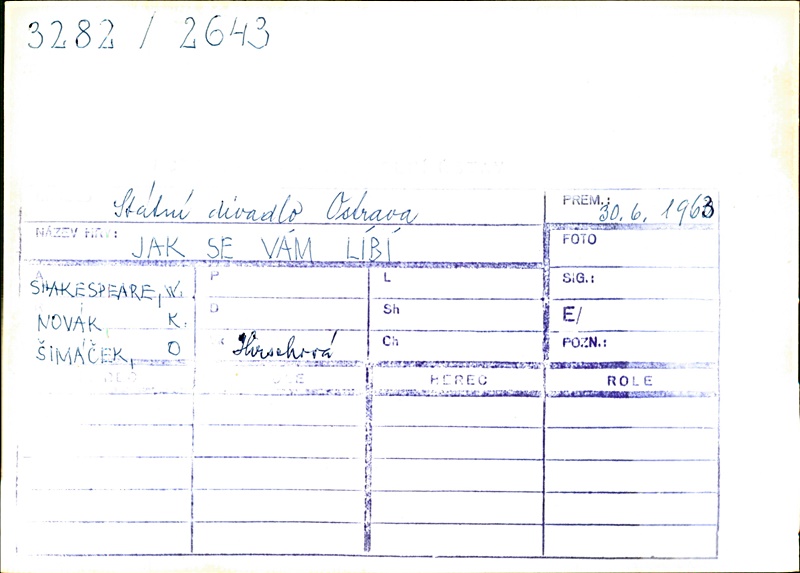 3282 / 2643
Státní divadlo Ostrava
PREM.: 30. 6. 1963
NÁZEV HRY: JAK SE VÁM LÍBÍ
FOTO
A SHAKESPEARE, W.
P
L
SIG.:
NOVÁK, K.
D
Sh
E/
ŠIMÁČEK, O
K Hirschová
Ch
POZN.:
HEREC
ROLE